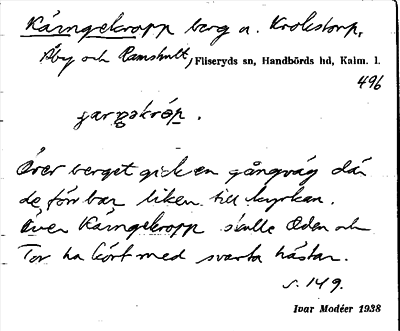 Käringekropp berg a. Krokstorp,
Åby och Ramshult, Fliseryds sn, Handbörds hd, Kalm. l.
496
Över berget gick en gångväg där
de förr bar liken till kyrkan.
Över Käringekropp skulle Oden och
Tor ha kört med svarta hästar.
s. 149.
Ivar Modéer 1938